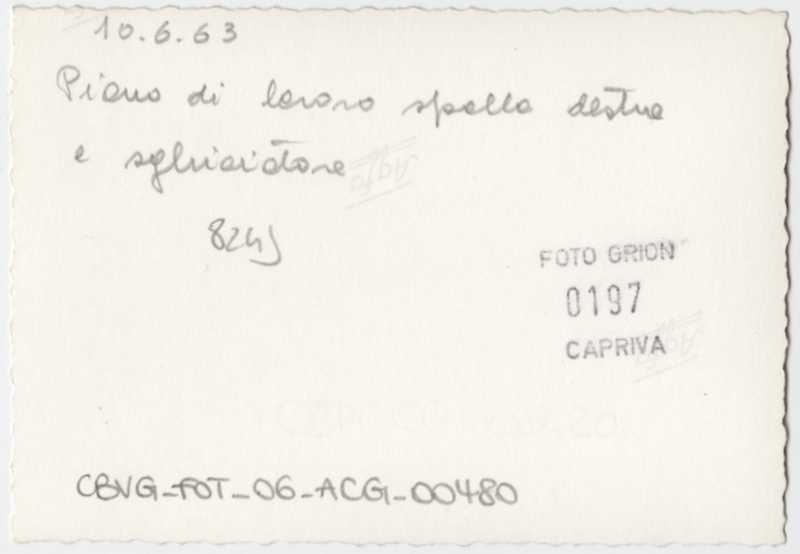 10.6.63
Piano di lavoro spalla destra
e sghiaiatore
FOTO GRION
0197
CAPRIVA
Agfa
Agfa
CBVG-FOT-06-ACG-00480